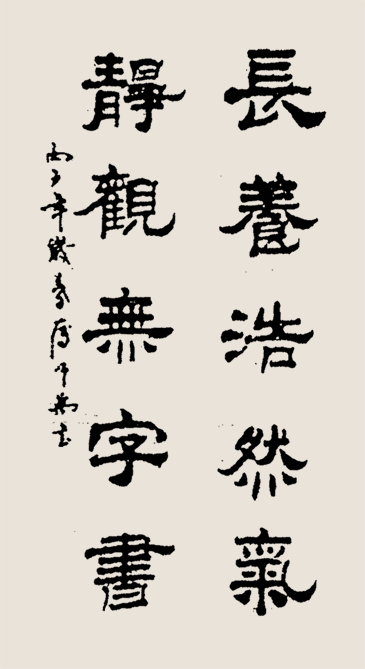 長養浩然氣
靜觀無字書
丙子年歲